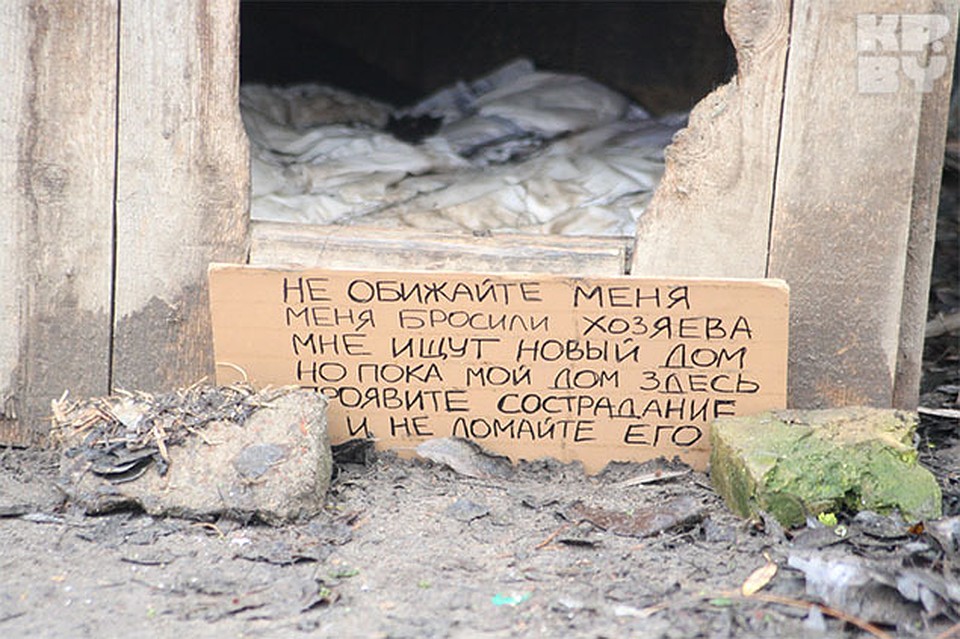 KP.
BY
НЕ ОБИЖАЙТЕ МЕНЯ
МЕНЯ БРОСИЛИ ХОЗЯЕВА
МНЕ ИЩУТ НОВЫЙ ДОМ
НО ПОКА МОЙ ДОМ ЗДЕСЬ
ПРОЯВИТЕ СОСТРАДАНИЕ
И НЕ ЛОМАЙТЕ ЕГО